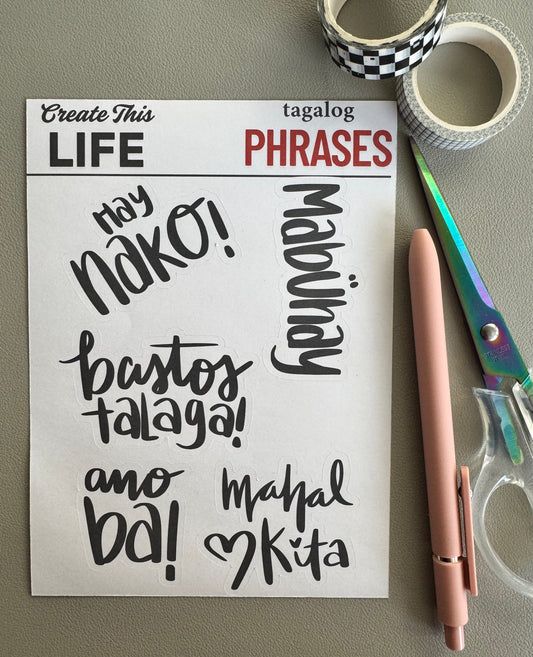 Create This
LIFE
tagalog
PHRASES
Hay
nako!
Mabühay
bastos
talaga!
ano
ba!
mahal
kita